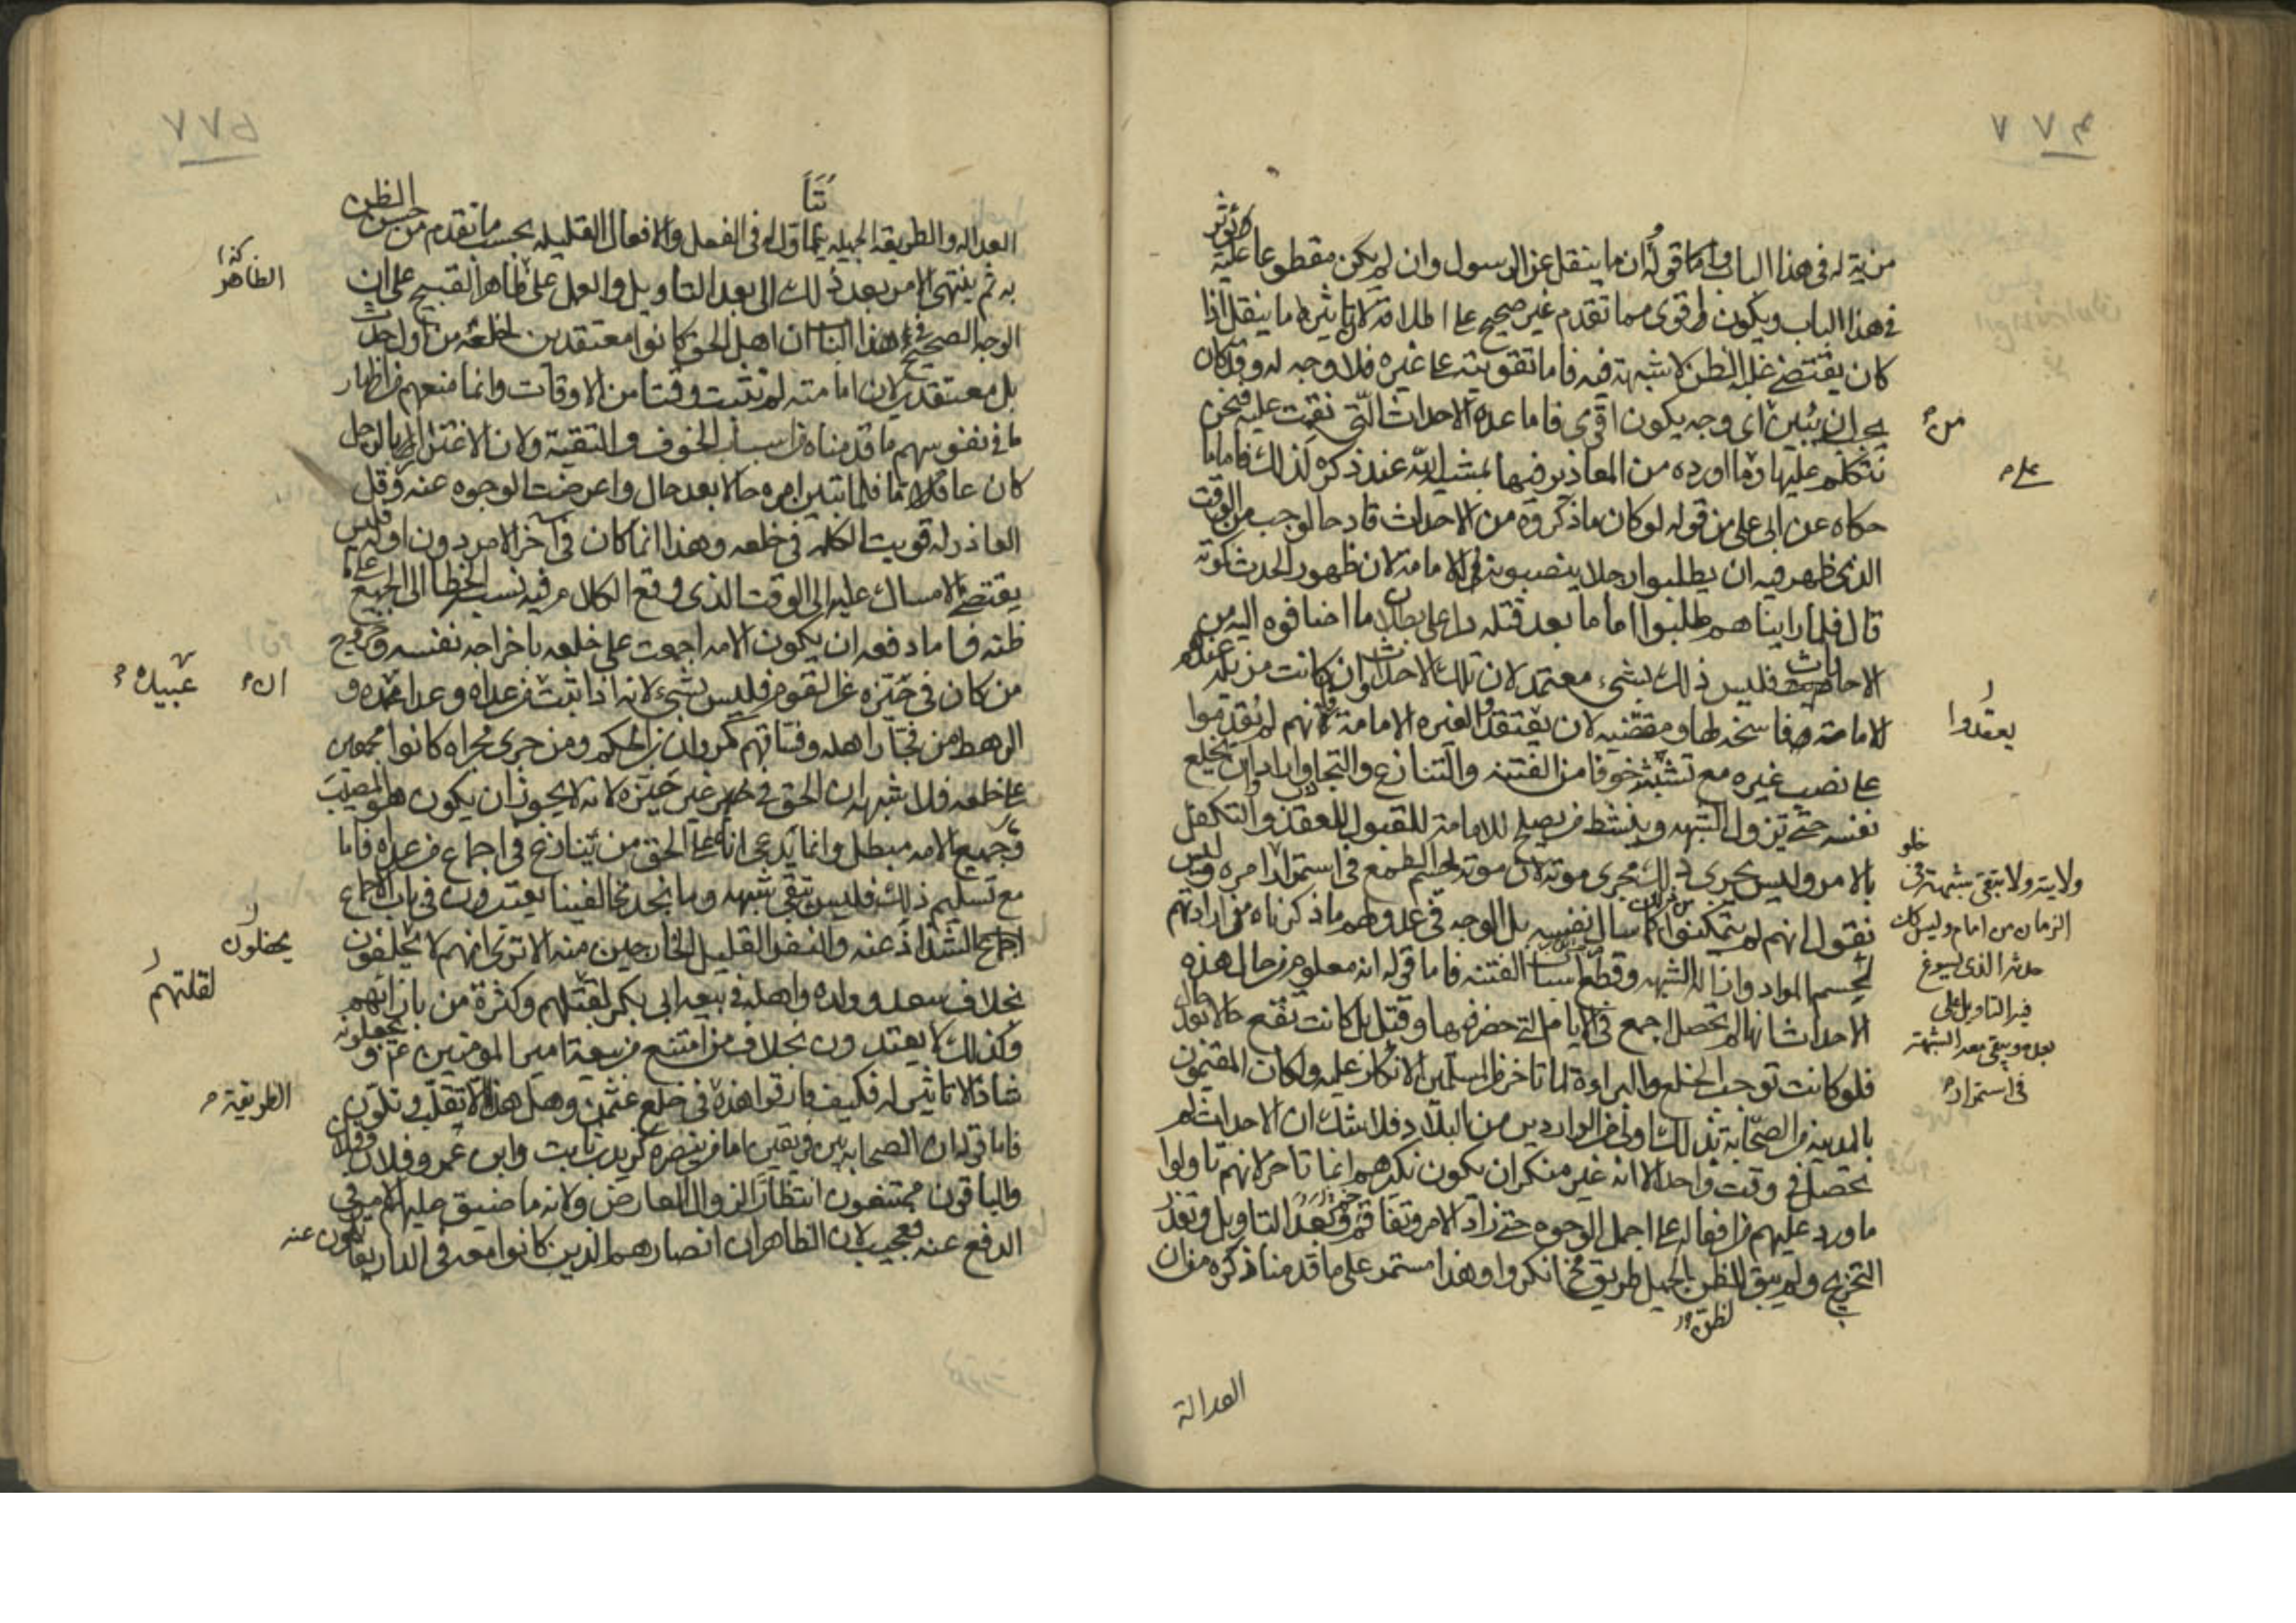 م ٧٧
مزية له في هذا الباب واما قوله ان ما ينقل عن الرسول وان لم يكن مقطوعا عليه يؤثر
في هذا الباب ويكون اقوى مما تقدم غير صحيح على اطلاقه لان تاثير ما ينقل اذا
كان يقتضي غلبة الظن لا شبهة فيه فاما تقويته على غيره فلا وجه له وقد كان
يجب ان يبين من اي وجه يكون اقوى فاما عده الاحداث التي نقمت عليه فنحن
نتكلم عليها وعلى ما اورده من المعاذير فيها بمشية الله عند ذكره لذلك فاما ما
حكاه عن ابي علي من قوله لو كان ما ذكروه من الاحداث قادحا لوجب من الوقت
الذي ظهر فيه ان يطلبوا رجلا ينصبونه في الامامة لان ظهور الحدث كموته
قال فلما رايناهم طلبوا اماما بعد قتله دل على بطلان ما اضافوه اليه من
الاحداث فليس ذلك بشيء معتمد لان تلك الاحداث وان كانت مزيلة عندهم
للامامة وفاسخة لها ومقتضيه لان يعقدوا لغيره الامامة فانهم لم يقدموا
على نصب غيره مع تشبثه خوفا من الفتنه والتنازع والتجاذب وارادوا ان يخلع
نفسه حتى تزول الشبهه وينشط من يصلح للامامة للقبول للعقد والتكفل
بالامر وليس يجري ذلك مجرى موته لان موته يحسم الطمع في استمرار امره وليس
نقول انهم لم يتمكنوا
لحسم المواد وازالة الشبهه وقطع اسباب الفتنه فاما قوله انه معلوم من حال هذه
الاحداث انها لم تحصل اجمع في الايام التي حضر فيها وقتل بل كانت تقع حالا بعد حال
فلو كانت توجب الخلع والبراءة لما تاخر من المسلمين الانكار عليه ولكان المقيمون
بالمدينة من الصحابة بذلك اولى من الواردين من البلاد فلا شك ان الاحداث لم
تحصل في وقت واحد الا انه غير منكر ان يكون نكيرهم انما تاخر لانهم تاولوا
ما ورد عليهم من افعاله على اجمل الوجوه حتى زاد الامر وتفاقم وبعد التاويل وتعذر
التخريج ولم يبق للظن الجميل طريق فحينئذ انكروا وهذا مستمر على ما قدمنا ذكره من ان
العدالة
من
على
يعقدوا
ولايته ولا تبقى شبهة في خلو
الزمان من امام وليس كذلك
حدثه الذي يسوغ
فيه التاويل على
بعده ويبقى معه الشبهة
في استمرار
٧٧
العداله والطريقه الجميله يتاول له في الفعل والافعال القليله بحسب ما تقدم من حسن الظن
به ثم ينتهي الامر بعد ذلك الى بعد التاويل والعمل على الظاهر القبيح على ان
الوجه الصحيح في هذا الباب ان اهل الحق كانوا معتقدين لخلعه من اول حدث
بل معتقدين لان امامته لم تثبت وقتا من الاوقات وانما منعهم من اظهار
ما في نفوسهم ما قدمناه من اسباب الخوف والتقية ولان الاغترار بالرجل
كان عاما فلما تبين امره حالا بعد حال واعرضت الوجوه عنه وقل
العاذر له قويت الكلمة في خلعه وهذا انما كان في آخر الامر دون اوله فليس
يقتضي الامساك عليه الى الوقت الذي وقع الكلام فيه نسبة الخطا الى الجميع على ما
ظنه فاما دفعه ان يكون الامه اجمعت على خلعه باخراجه نفسه وخروج
من كان في حيزه عن القوم فليس بشيء لانه اذا ثبت ان من عداه وعدا عبيده و
الرهط من فجار اهله وفساقهم كمروان بن الحكم ومن جرى مجراه كانوا مجمعين
على خلعه فلا شبهه ان الحق في غير حيزه لانه لا يجوز ان يكون هو المصيب
وجميع الامه مبطل وانما يدعي انه على الحق من ينازع في اجماع من عداه فاما
مع تسليم ذلك فليس تبقى شبهه وما نجد مخالفينا يعتدون في باب الاجماع
باجماع الشذاذ عنه والنفر القليل الخارجين منه الا ترى انهم لا يحفلون
بخلاف سعد وولده واهله في بيعة ابي بكر لقلتهم وكثرة من بازائهم
وكذلك لا يعتدون بخلاف من امتنع من بيعة امير المؤمنين ع و يجعلونه
شاذا لا تاثير له فكيف فارقوا هذه الطريقة في خلع عثمن وهل هذا الا تقلب وتلون
فاما قوله ان الصحابه بين فريقين اما من ينصره كزيد بن ثابت وابن عمر وفلان وفلان
والباقون ممتنعون انتظارا لزوال العارض ولانه ما ضيق عليهم الامر في
الدفع عنه فعجيب لان الظاهر ان انصاره هم الذين كانوا معه في الدار يقاتلون عنه
الظاهر
عبيده
ان
يحفلون
لقلتهم
الطريقة